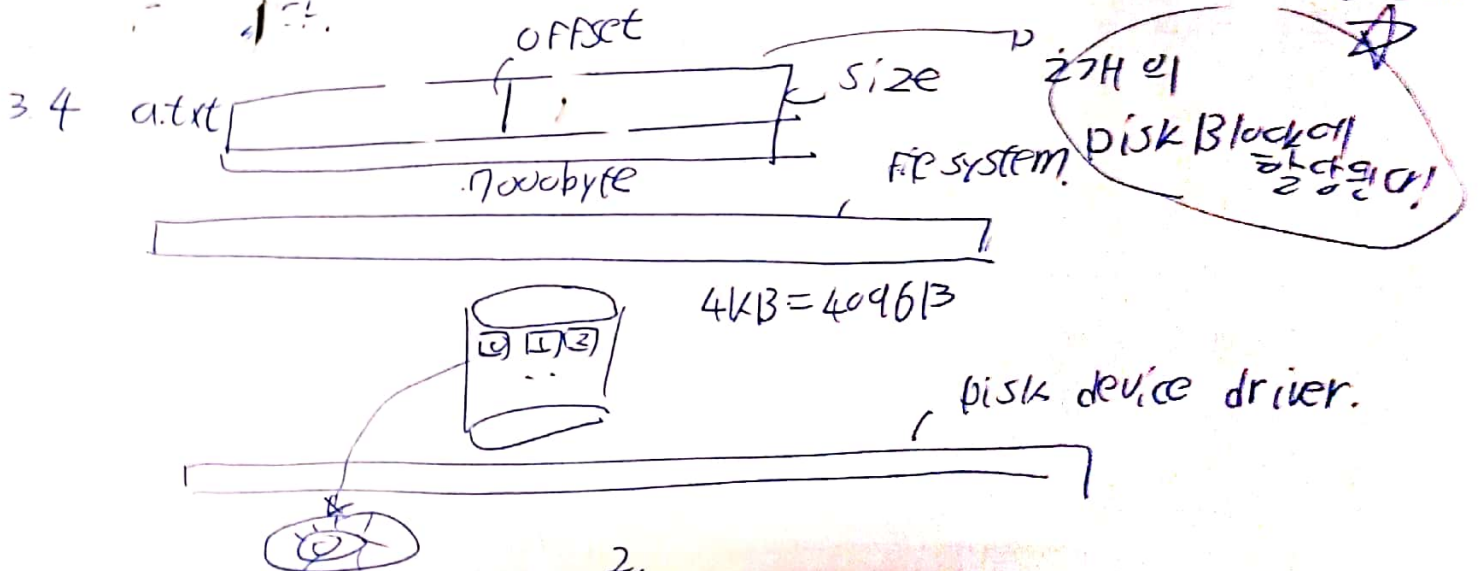 offset
3 4 a.txt
size
2개의
Disk Block에
할당된다!
7000byte
File system.
4KB = 4096B
0 1 2
Disk device driver.
2.